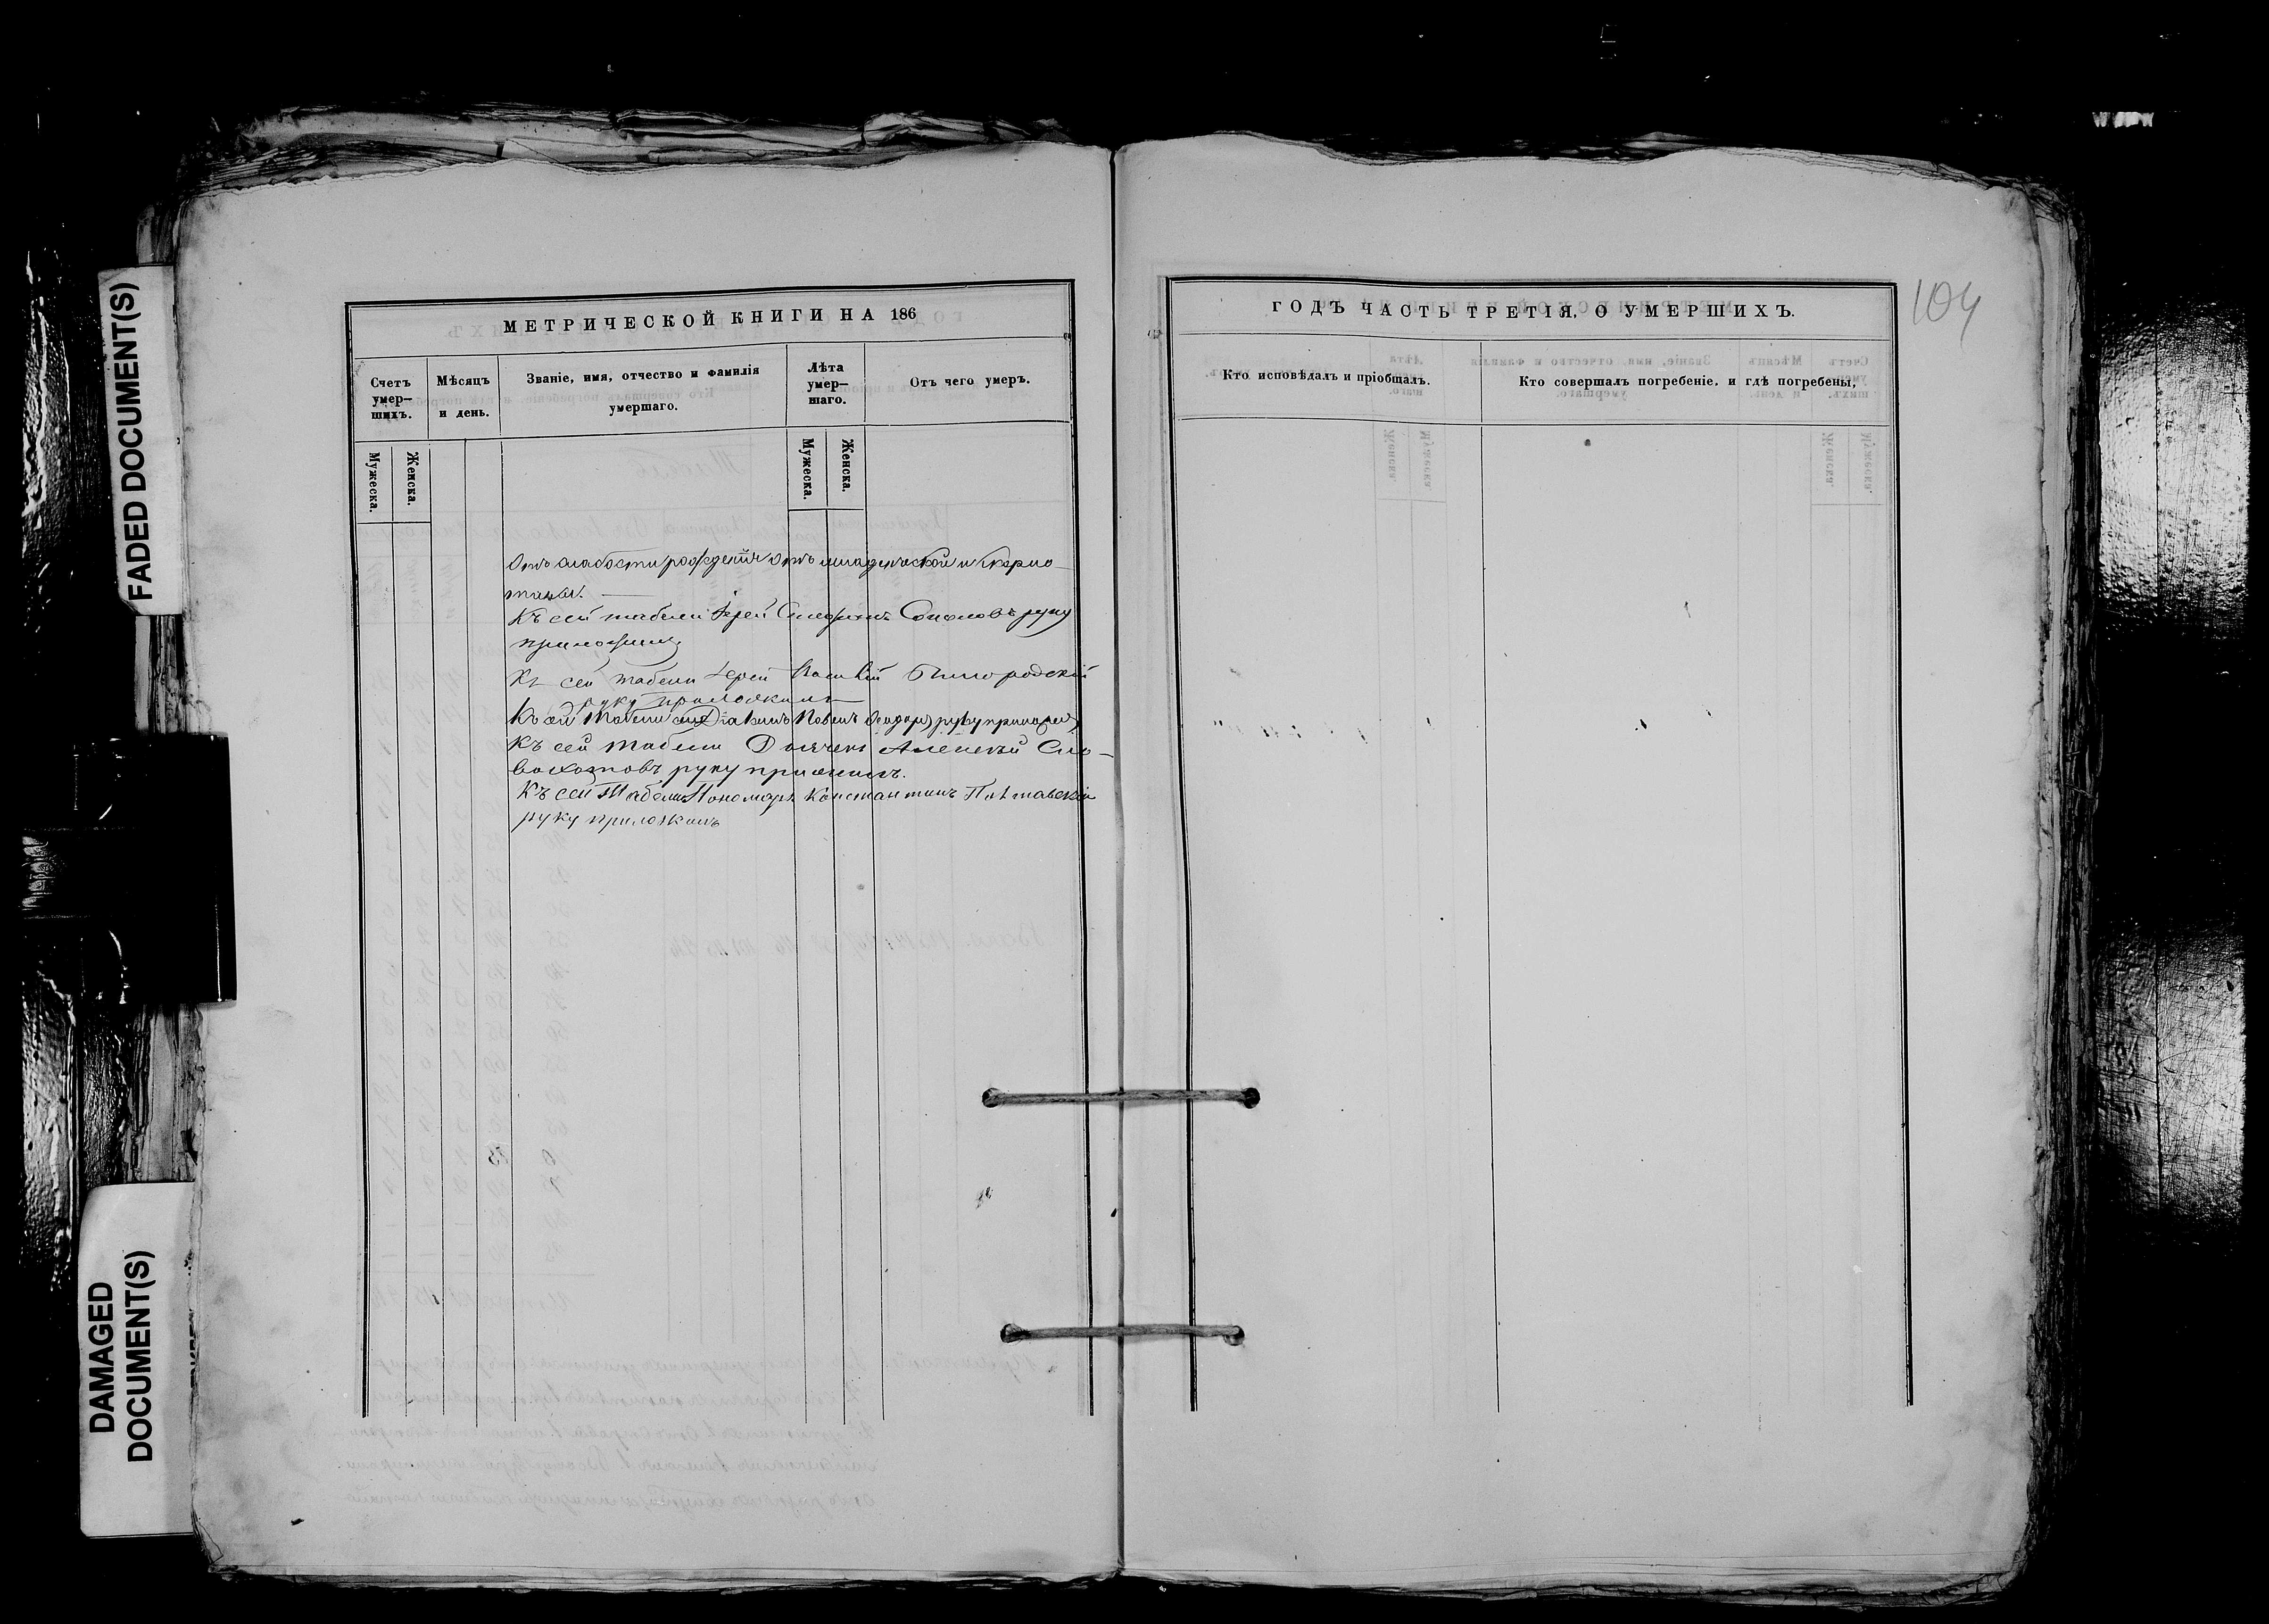 FADED DOCUMENT(S)
DAMAGED
DOCUMENT(S)
МЕТРИЧЕСКОЙ КНИГИ НА 186
Счетъ
умер—
шихъ.
Мѣсяцъ
и день.
Званіе, имя, отчество и фамилія
умершаго.
Лѣта
умер—
шаго.
Отъ чего умеръ.
Мужеска.
Женска.
Мужеска.
Женска.
Отъ слабости рожденія отъ младенческой и
Къ сей табели Іерей Соколовъ руку
приложилъ
Къ сей табели Іерей Василій Бѣлгородскій
руку приложилъ
Къ сей Табели Діаконъ Павелъ руку приложилъ
Къ сей табели Дьячекъ Алексѣй Сло—
воохотовъ руку приложилъ.
Къ сей Табели Пономарь Константинъ Полтавскій
руку приложилъ
ГОДЪ ЧАСТЬ ТРЕТІЯ, О УМЕРШИХЪ.
104
Кто исповѣдалъ и пріобщалъ.
Кто совершалъ погребеніе, и гдѣ погребены,